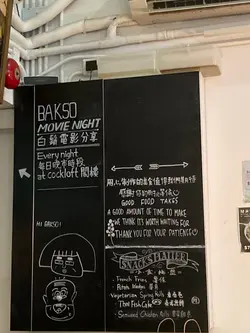 BAKSO
MOVIE NIGHT
白鬍電影分享
Every night
每日晚市時段
at cockloft 閣樓
HI BAKSO!
用心製作的美食值得我們等待
感謝你的耐心等候
GOOD FOOD TAKES
A GOOD AMOUNT OF TIME TO MAKE
WE THINK IT'S WORTH WAITING FOR
THANK YOU FOR YOUR PATIENCE
SNACKS PLATTER
小食拼盤
French Fries 薯條
Potato Wedges 薯角
Vegetarian Spring Rolls
Thai Fish Cake
Seaweed Chicken Rolls